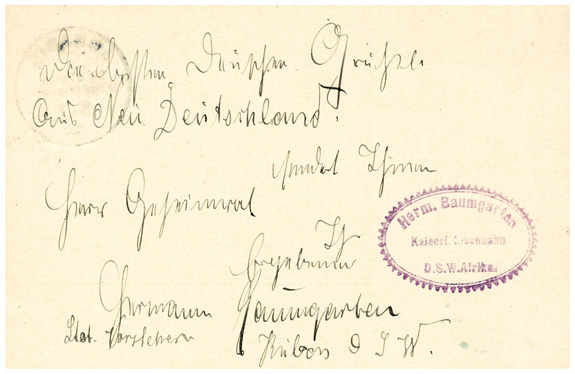 Die besten Deutschen Grüße
aus Neu Deutschland!
sendet Ihnen
Herr Geheimrat
Ihr
Ergebener
Hermann Baumgarten
Stat. Vorsteher
D S W.
Herm. Baumgarten
Kaiserl. Eisenbahn
D.S.W.Afrika.